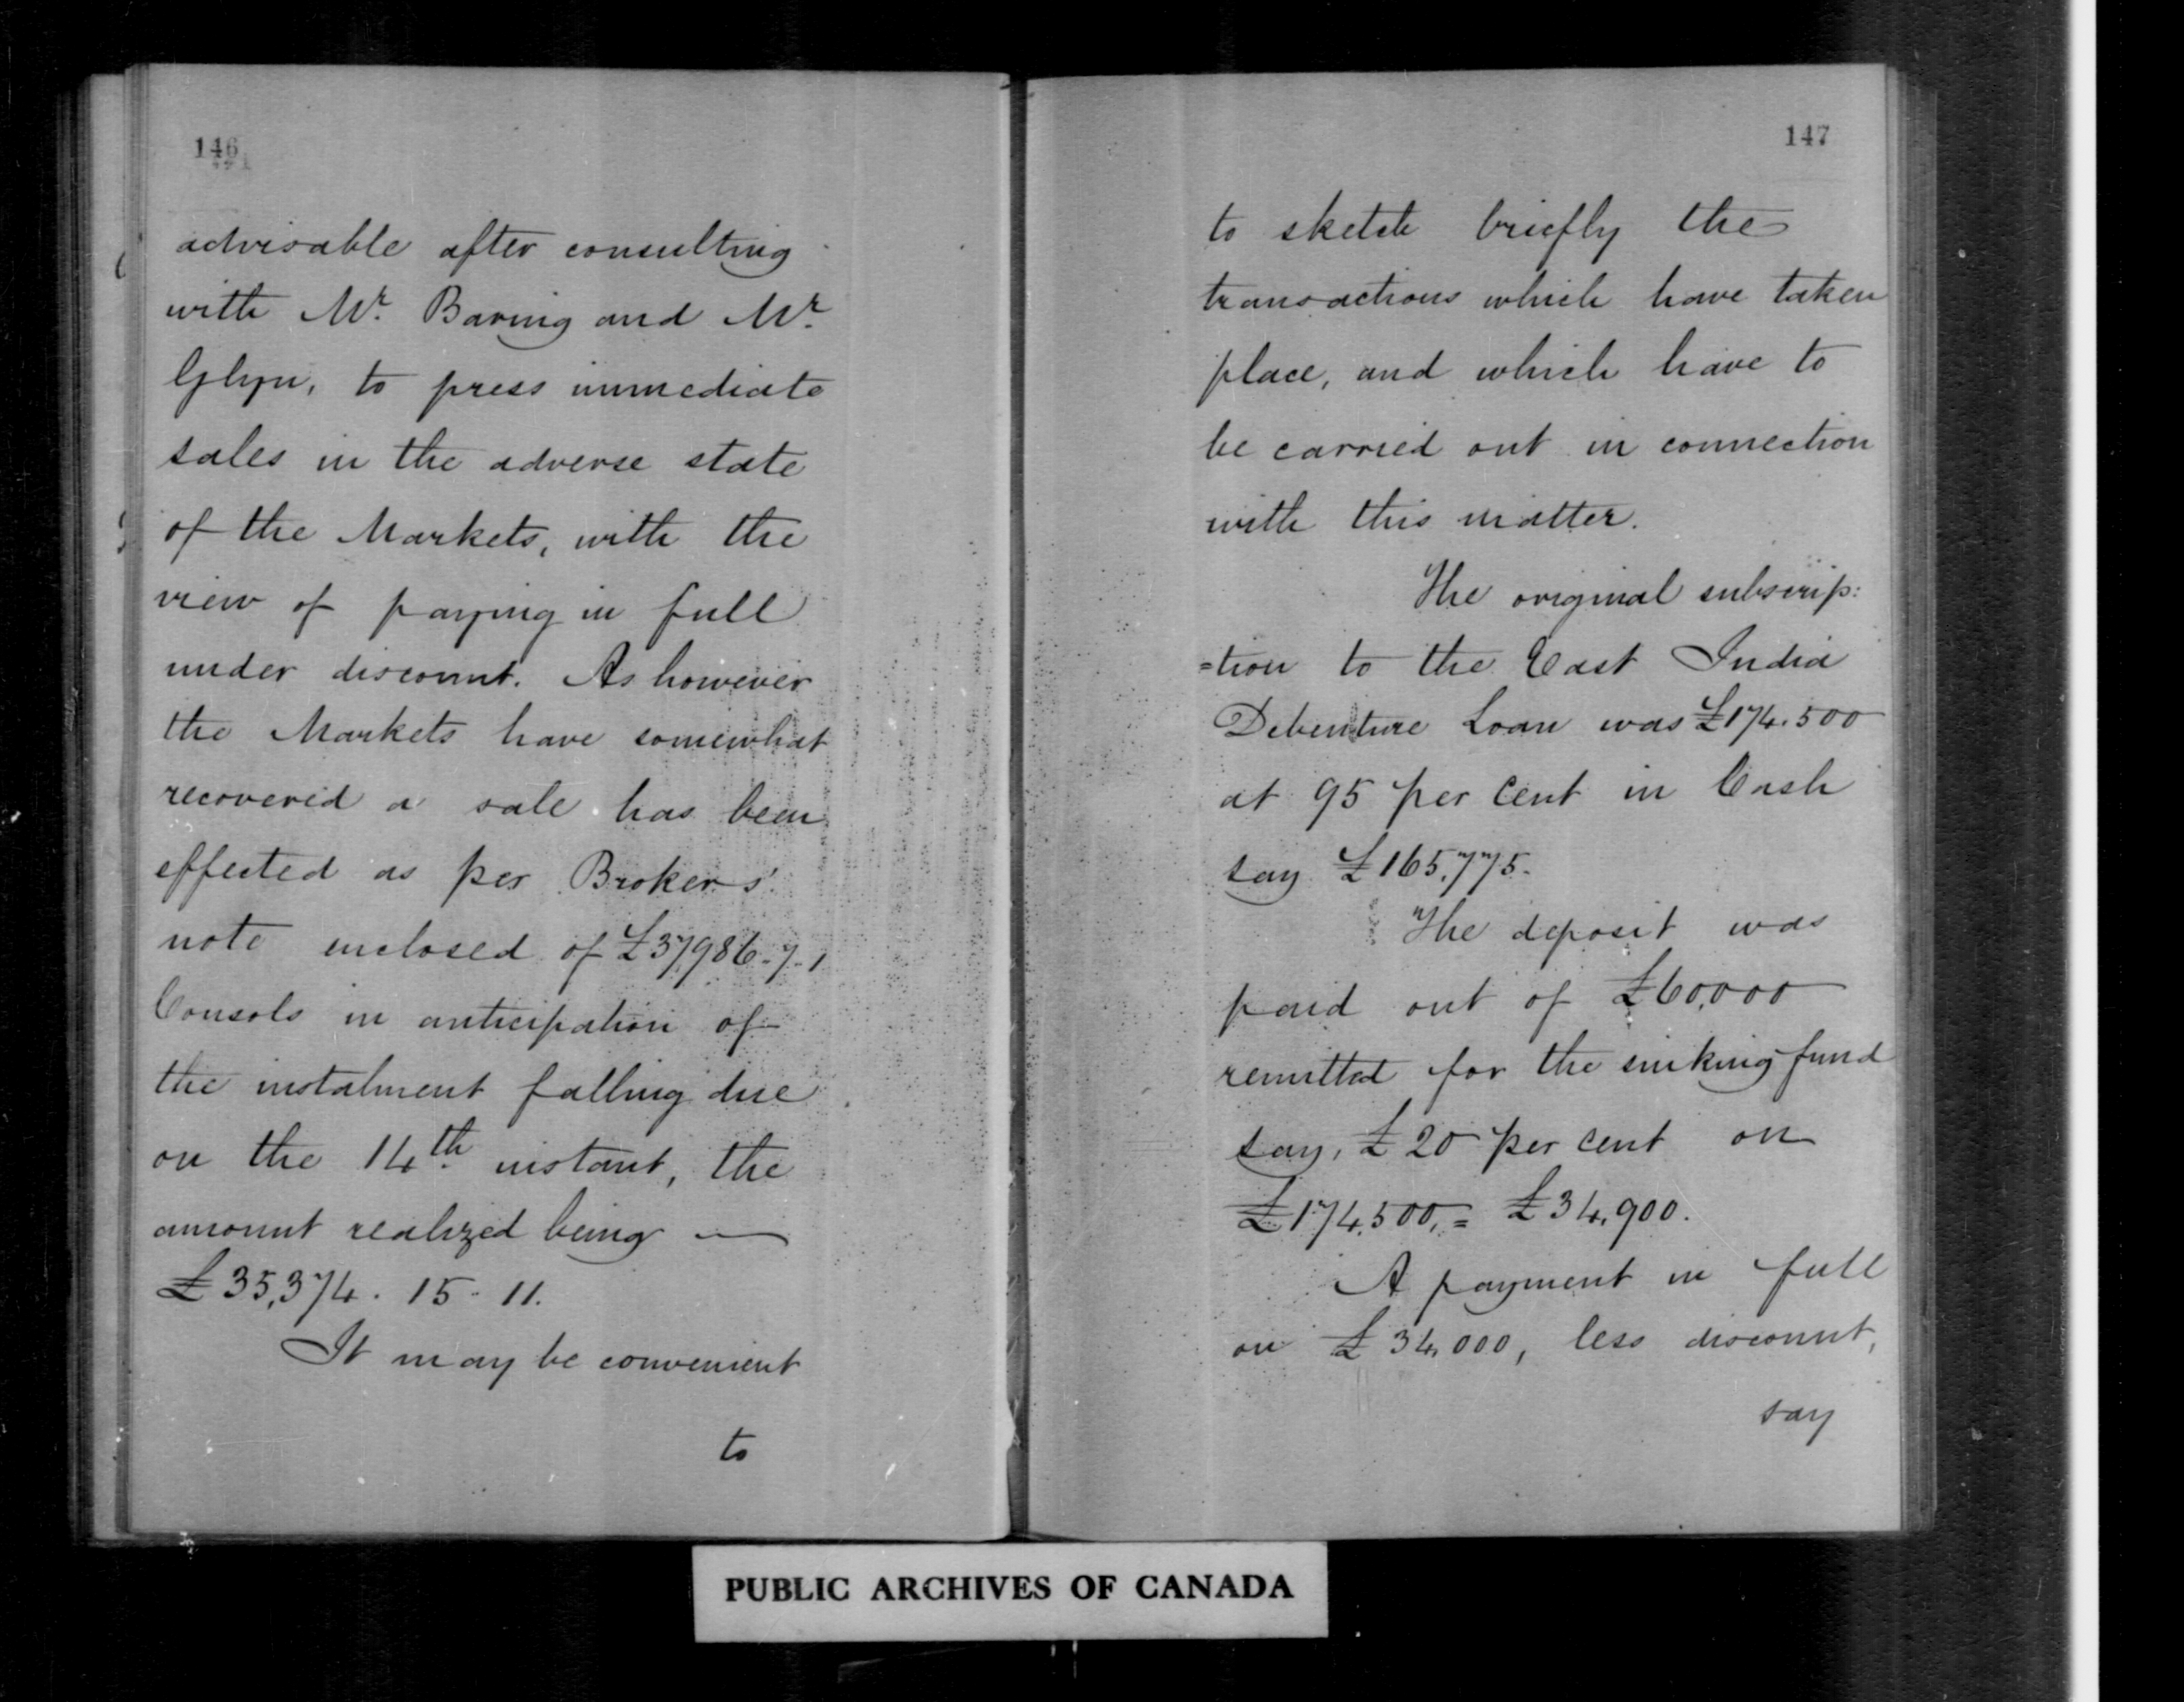 146
advisable after consulting
with Mr. Baring and Mr.
Glyn, to press immediate
sales in the adverse state
of the Markets, with the
view of paying in full
under discount. As however
the Markets have somewhat
recovered a sale has been
effected as per Brokers'
note enclosed of £37,986-7-1
Consols in anticipation of
the instalment falling due
on the 14th instant, the
amount realized being —
£35,374. 15. 11.
It may be convenient
to
147
to sketch briefly the
transactions which have taken
place, and which have to
be carried out in connection
with this matter.
The original subscrip:
=tion to the East India
Debenture Loan was £174.500
at 95 per cent in Cash
say £165,775.
The deposit was
paid out of £60,000
remitted for the sinking fund
say, £20 per cent on
£174,500, = £34,900.
A payment in full
on £34,000, less discount,
say
PUBLIC ARCHIVES OF CANADA